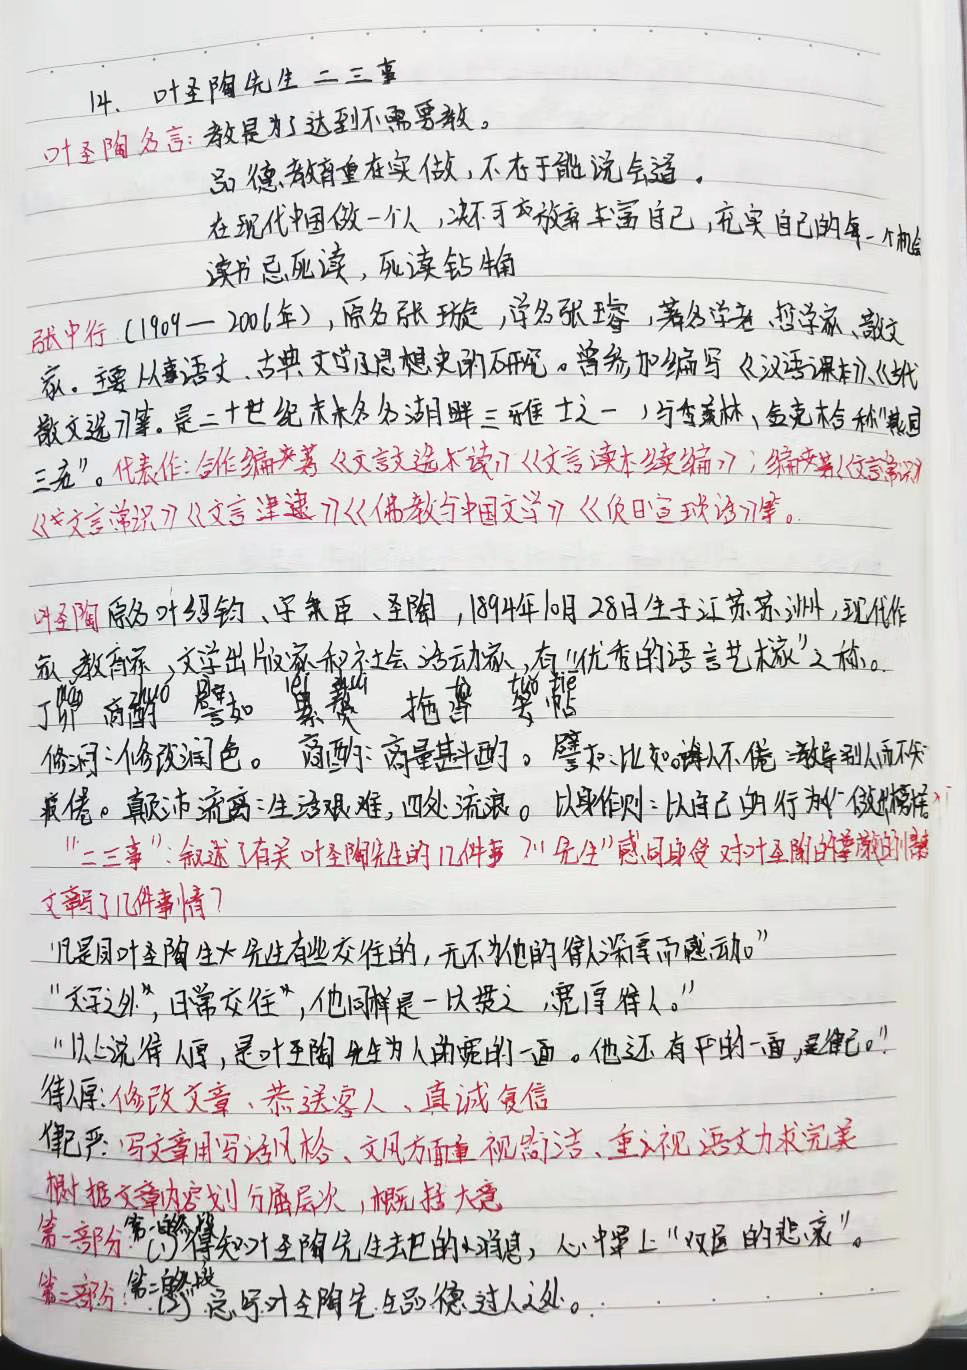 14、叶圣陶先生二三事
叶圣陶名言：教是为了达到不需要教。
品德教育重在实做，不在于能说会道。
在现代中国做一个人，决不可放弃丰富自己，充实自己的每一个机会
读书忌死读，死读钻牛角
张中行（1909—2006年），原名张璇，学名张璿，著名学者、哲学家、散文
家。主要从事语文、古典文学及思想史的研究。曾参加编写《汉语课本》、《古代
散文选》等。是二十世纪末未名湖畔三雅士之一，与季羡林、金克木合称"燕园
三老"。代表作：合作编著《文言文选读》《文言读本续编》；编著《文言常识》
《文言常识》《文言津逮》《佛教与中国文学》《负日琐语》等。
叶圣陶原名叶绍钧、字秉臣、圣陶，1894年10月28日生于江苏苏州，现代作
家、教育家、文学出版家和社会活动家，有"优秀的语言艺术家"之称。
商酌 譬如 累赘 拖沓 妥帖
修润：修改润色。 商酌：商量斟酌。 譬如：比如。诲人不倦：教导别人而不知
疲倦。颠沛流离：生活艰难，四处流浪。以身作则：以自己的行为做出榜样
"二三事"：叙述了有关叶圣陶先生的几件事？"先生"感同身受对叶圣陶的尊敬的情
文章写了几件事情？
"凡是同叶圣陶先生有些交往的，无不为他的待人深厚而感动。"
"文字之外，日常交往，他同样是一以贯之，宽厚待人。"
"以上说待人厚，是叶圣陶先生为人的宽的一面。他还有严的一面，是律己。"
待人厚：修改文章、恭送客人、真诚复信
律己严：写文章用写话风格、文风方面重视简洁、重视语文力求完美
根据文章内容划分层次，概括大意
第一部分：(1)得知叶圣陶先生去世的消息，心中罩上"双层的悲哀"。
第二部分：(2)总写叶圣陶先生品德过人之处。